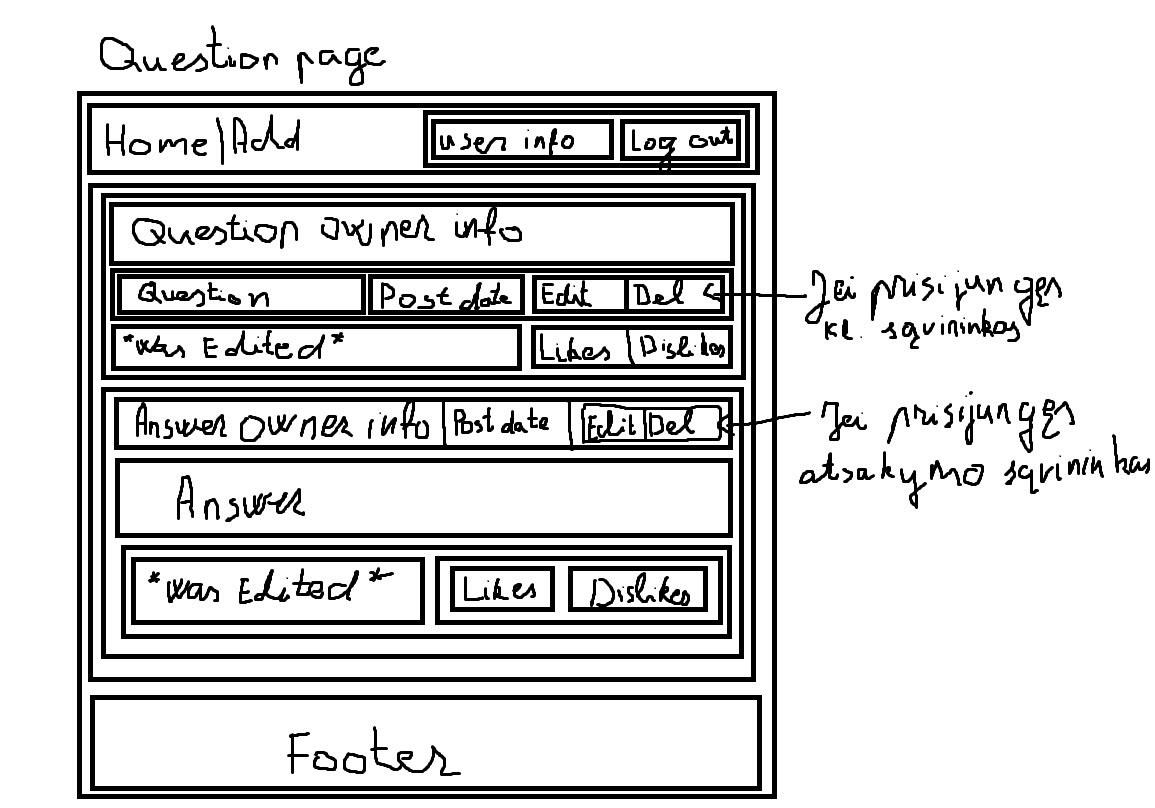 Question page
Home|Add
user info
Log out
Question owner info
Question
Post date
Edit
Del
Jei prisijungęs
kl. sąvininkas
*was Edited*
Likes
Dislikes
Answer owner info
Post date
Edit
Del
Jei prisijungęs
atsakymo sąvininkas
Answer
*was Edited*
Likes
Dislikes
Footer